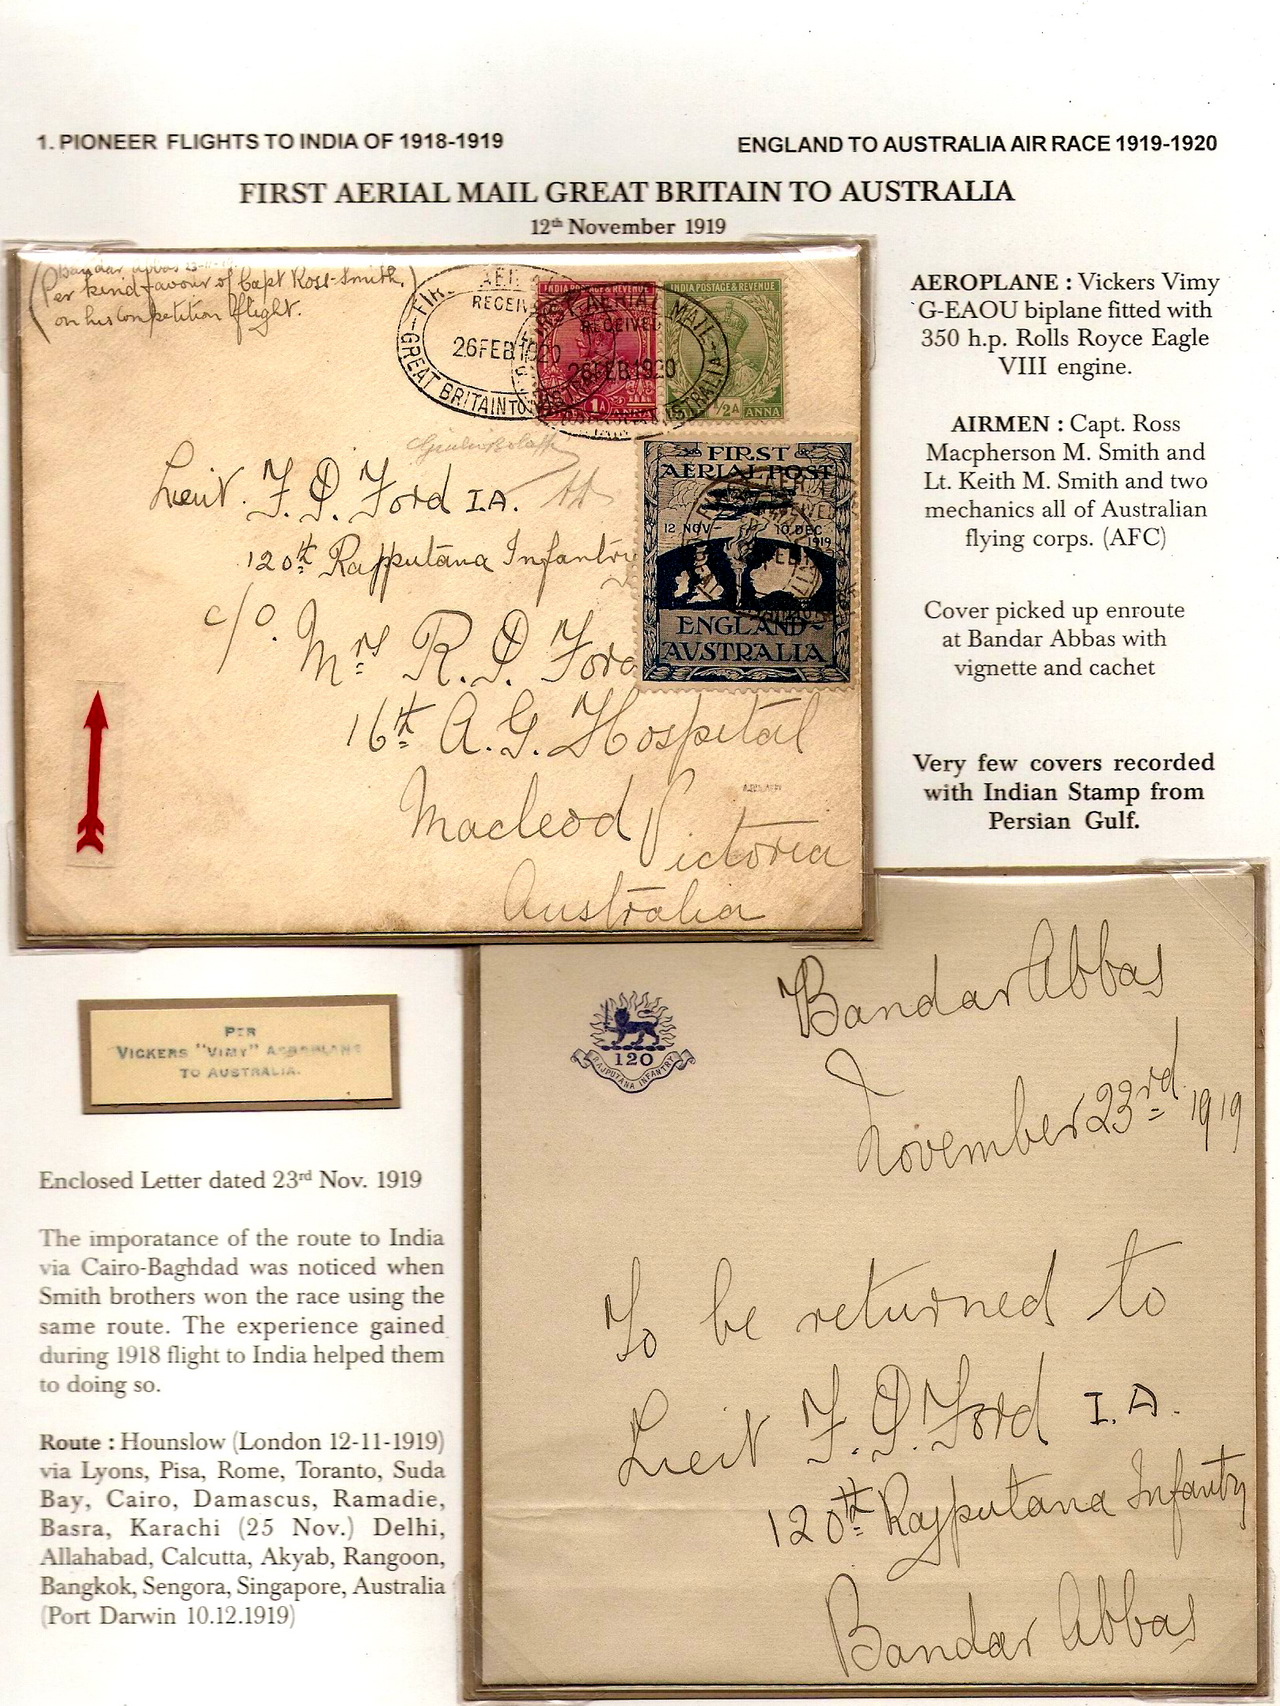 1. PIONEER FLIGHTS TO INDIA OF 1918-1919
ENGLAND TO AUSTRALIA AIR RACE 1919-1920
FIRST AERIAL MAIL GREAT BRITAIN TO AUSTRALIA
12th November 1919
(Bandar Abbas
Per kind favour of Capt Ross-Smith.)
on his competition flight.
RECEIV
26 FEB 1920
GREAT BRITAIN TO
FIRST AERIAL MAIL
RECEIVED
26 FEB 1920
INDIA POSTAGE & REVENUE
1A ANNA
INDIA POSTAGE & REVENUE
1/2A ANNA
FIRST
AERIAL POST
12 NOV - 10 DEC
1919
ENGLAND
AUSTRALIA
Lieut. F. D. Ford I.A.
120th Rajputana Infantry
c/o. Mrs R. D. Ford
16th A. G. Hospital
Macleod Victoria
Australia
AEROPLANE : Vickers Vimy
G-EAOU biplane fitted with
350 h.p. Rolls Royce Eagle
VIII engine.
AIRMEN : Capt. Ross
Macpherson M. Smith and
Lt. Keith M. Smith and two
mechanics all of Australian
flying corps. (AFC)
Cover picked up enroute
at Bandar Abbas with
vignette and cachet
Very few covers recorded
with Indian Stamp from
Persian Gulf.
PER
VICKERS "VIMY" AEROPLANE
TO AUSTRALIA.
Enclosed Letter dated 23rd Nov. 1919
The imporatance of the route to India
via Cairo-Baghdad was noticed when
Smith brothers won the race using the
same route. The experience gained
during 1918 flight to India helped them
to doing so.
Route : Hounslow (London 12-11-1919)
via Lyons, Pisa, Rome, Toranto, Suda
Bay, Cairo, Damascus, Ramadie,
Basra, Karachi (25 Nov.) Delhi,
Allahabad, Calcutta, Akyab, Rangoon,
Bangkok, Sengora, Singapore, Australia
(Port Darwin 10.12.1919)
120
RAJPUTANA INFANTRY
Bandar Abbas
November 23rd 1919
To be returned to
Lieut F. D. Ford I.A.
120th Rajputana Infantry
Bandar Abbas